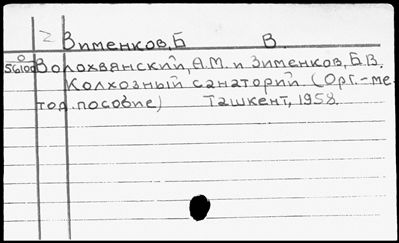 2 Зименков, Б В.
О
56100 Волохвянский, А.М. и Зименков, Б.В.
Колхозный санаторий. (Орг.-ме-
тод. пособие) Ташкент, 1958.